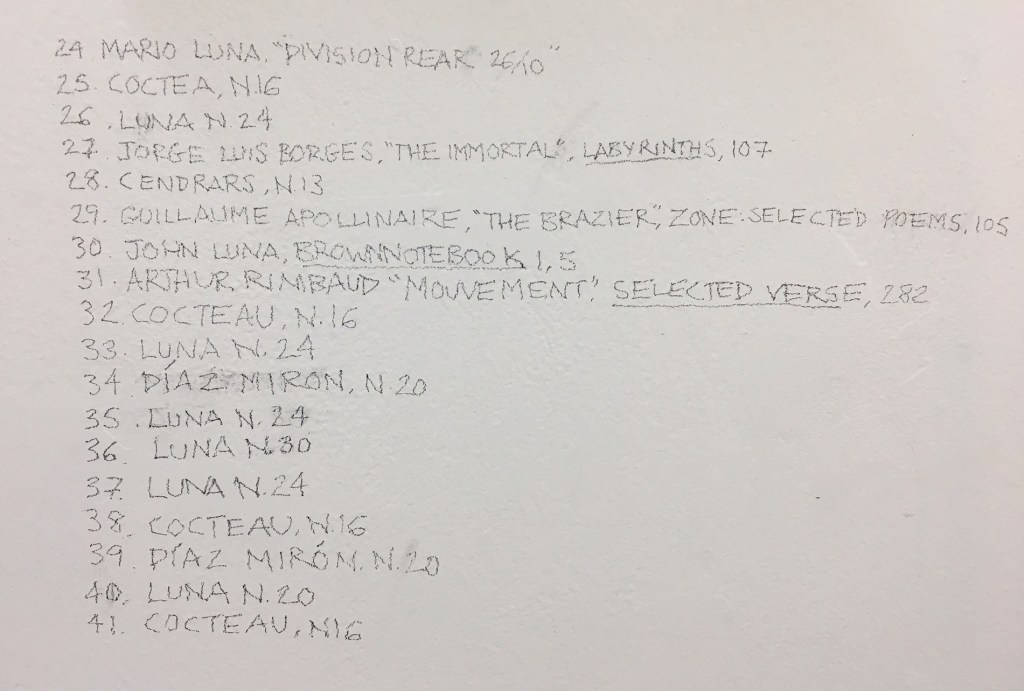 24 MARIO LUNA, "DIVISION REAR 26/10"
25. COCTEA, N.16
26. LUNA N. 24
27. JORGE LUIS BORGES, "THE IMMORTAL", LABYRINTHS, 107
28. CENDRARS, N.13
29. GUILLAUME APOLLINAIRE, "THE BRAZIER", ZONE: SELECTED POEMS, 105
30. JOHN LUNA, BROWNNOTEBOOK 1, 5
31. ARTHUR RIMBAUD "MOUVEMENT." SELECTED VERSE, 282
32. COCTEAU, N.16
33. LUNA N. 24
34. DÍAZ MIRON, N. 20
35. LUNA N. 24
36. LUNA N.30
37. LUNA N.24
38. COCTEAU, N.16
39. DÍAZ MIRÓN, N. 20
40. LUNA N.20
41. COCTEAU, N16